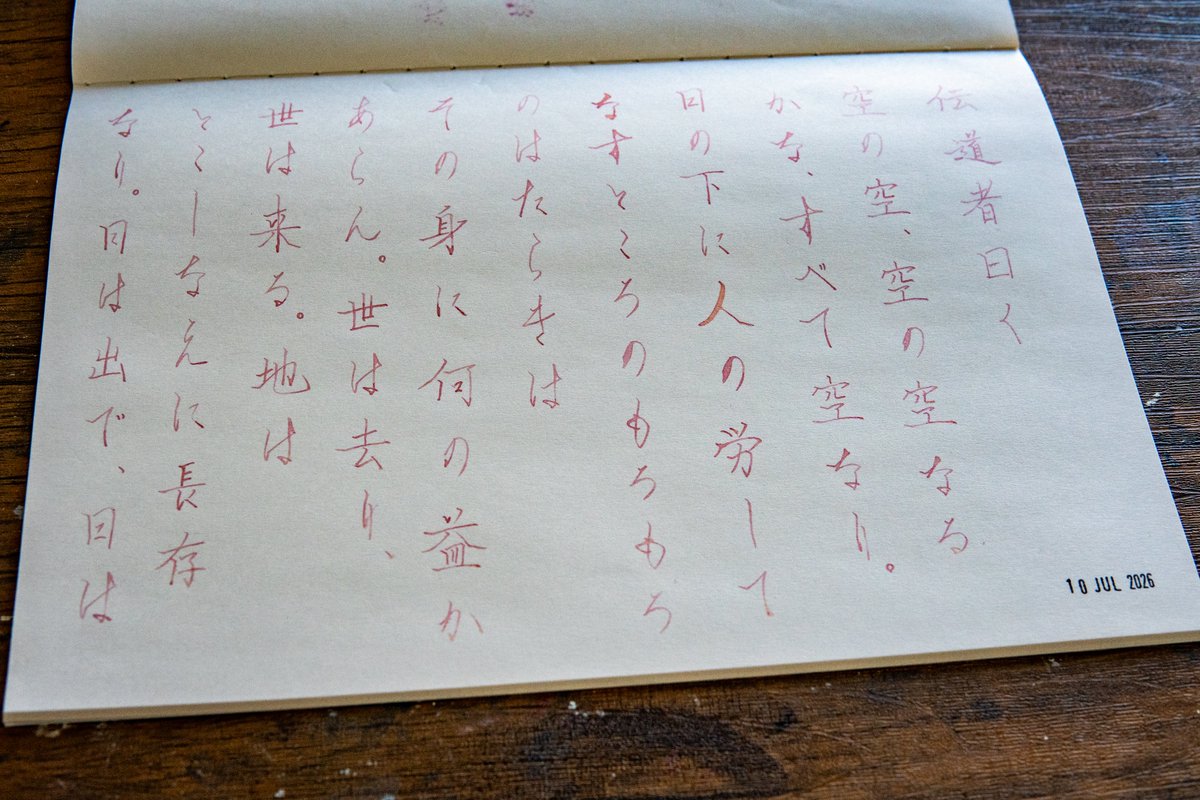 伝道者曰く
空の空、空の空なる
かな、すべて空なり。
日の下に人の労して
なすところのもろもろ
のはたらきは
その身に何の益か
あらん。世は去り、
世は来る。地は
とこしなえに長存
なり。日は出で、日は
10 JUL 2026